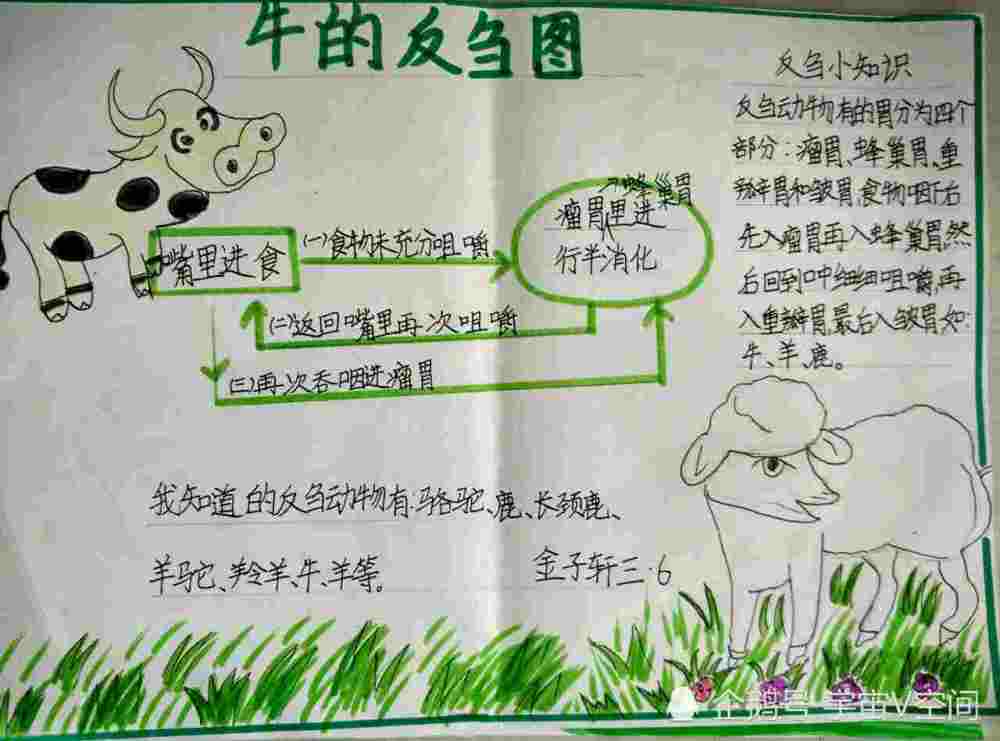 牛的反刍图
嘴里进食
(一)食物未充分咀嚼
蜂巢胃
瘤胃里进
行半消化
(二)返回嘴里再次咀嚼
(三)再次吞咽进瘤胃
反刍小知识
反刍动物有的胃分为四个
部分：瘤胃、蜂巢胃、重
瓣胃和皱胃,食物咽下后
先入瘤胃再入蜂巢胃,然
后回到口中细细咀嚼,再
入重瓣胃,最后入皱胃如:
牛、羊、鹿。
我知道的反刍动物有:骆驼、鹿、长颈鹿、
羊驼、羚羊、牛、羊等。
金子轩三.6
企鹅号 宇宙V空间